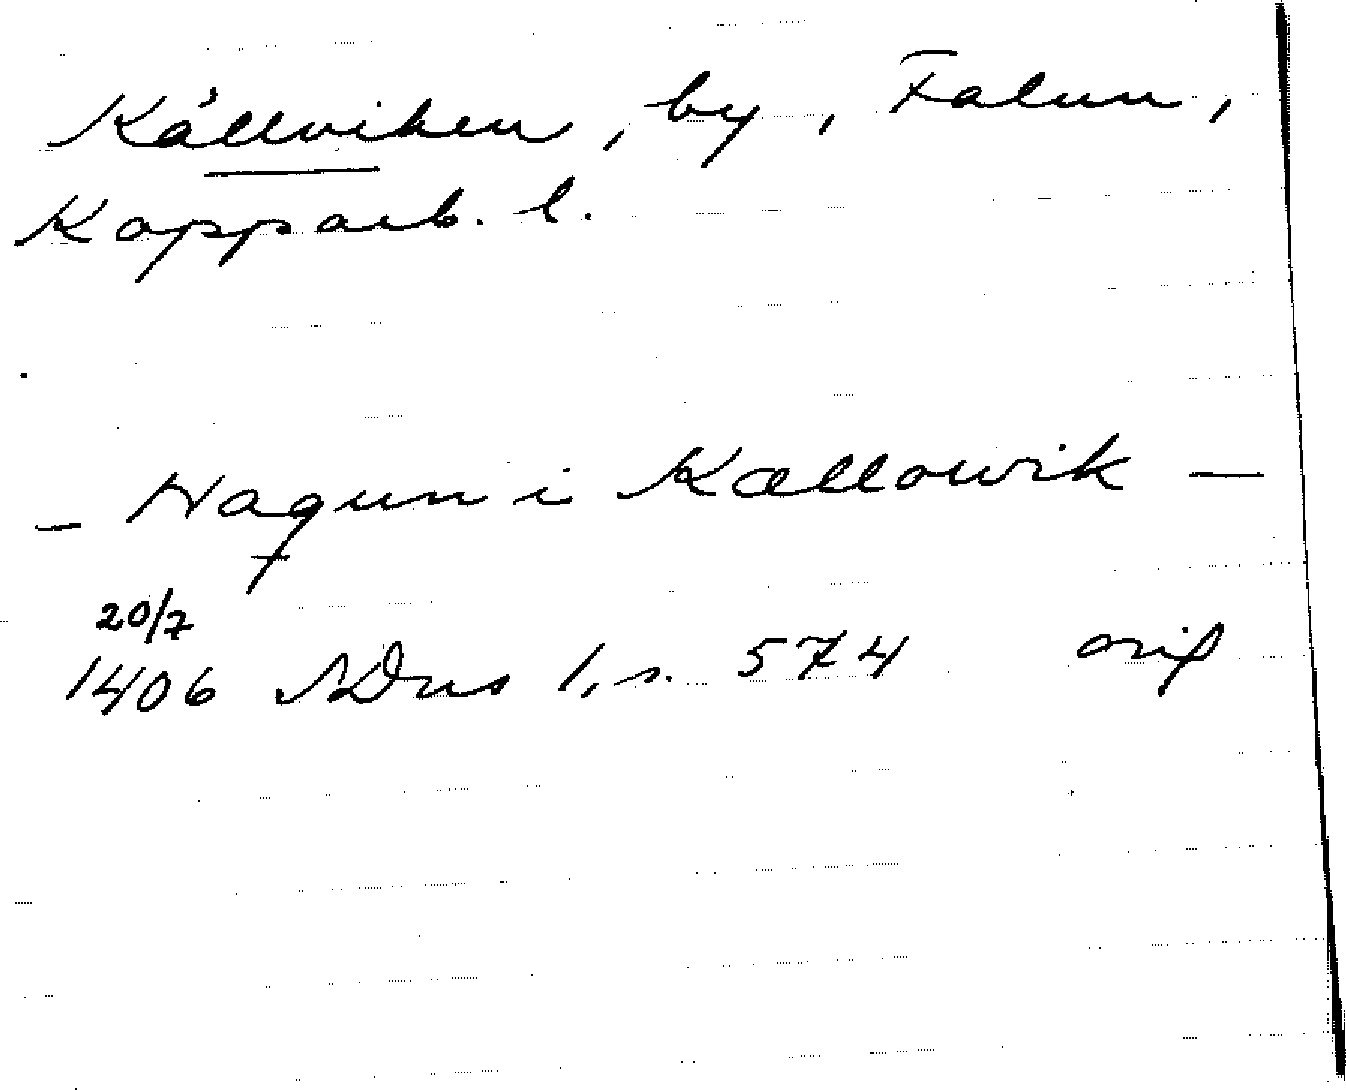 Källviken, by, Falun,
Kopparb. l.
- Haqun i Kællowik -
20/7
1406 NDns 1, s. 574 orig